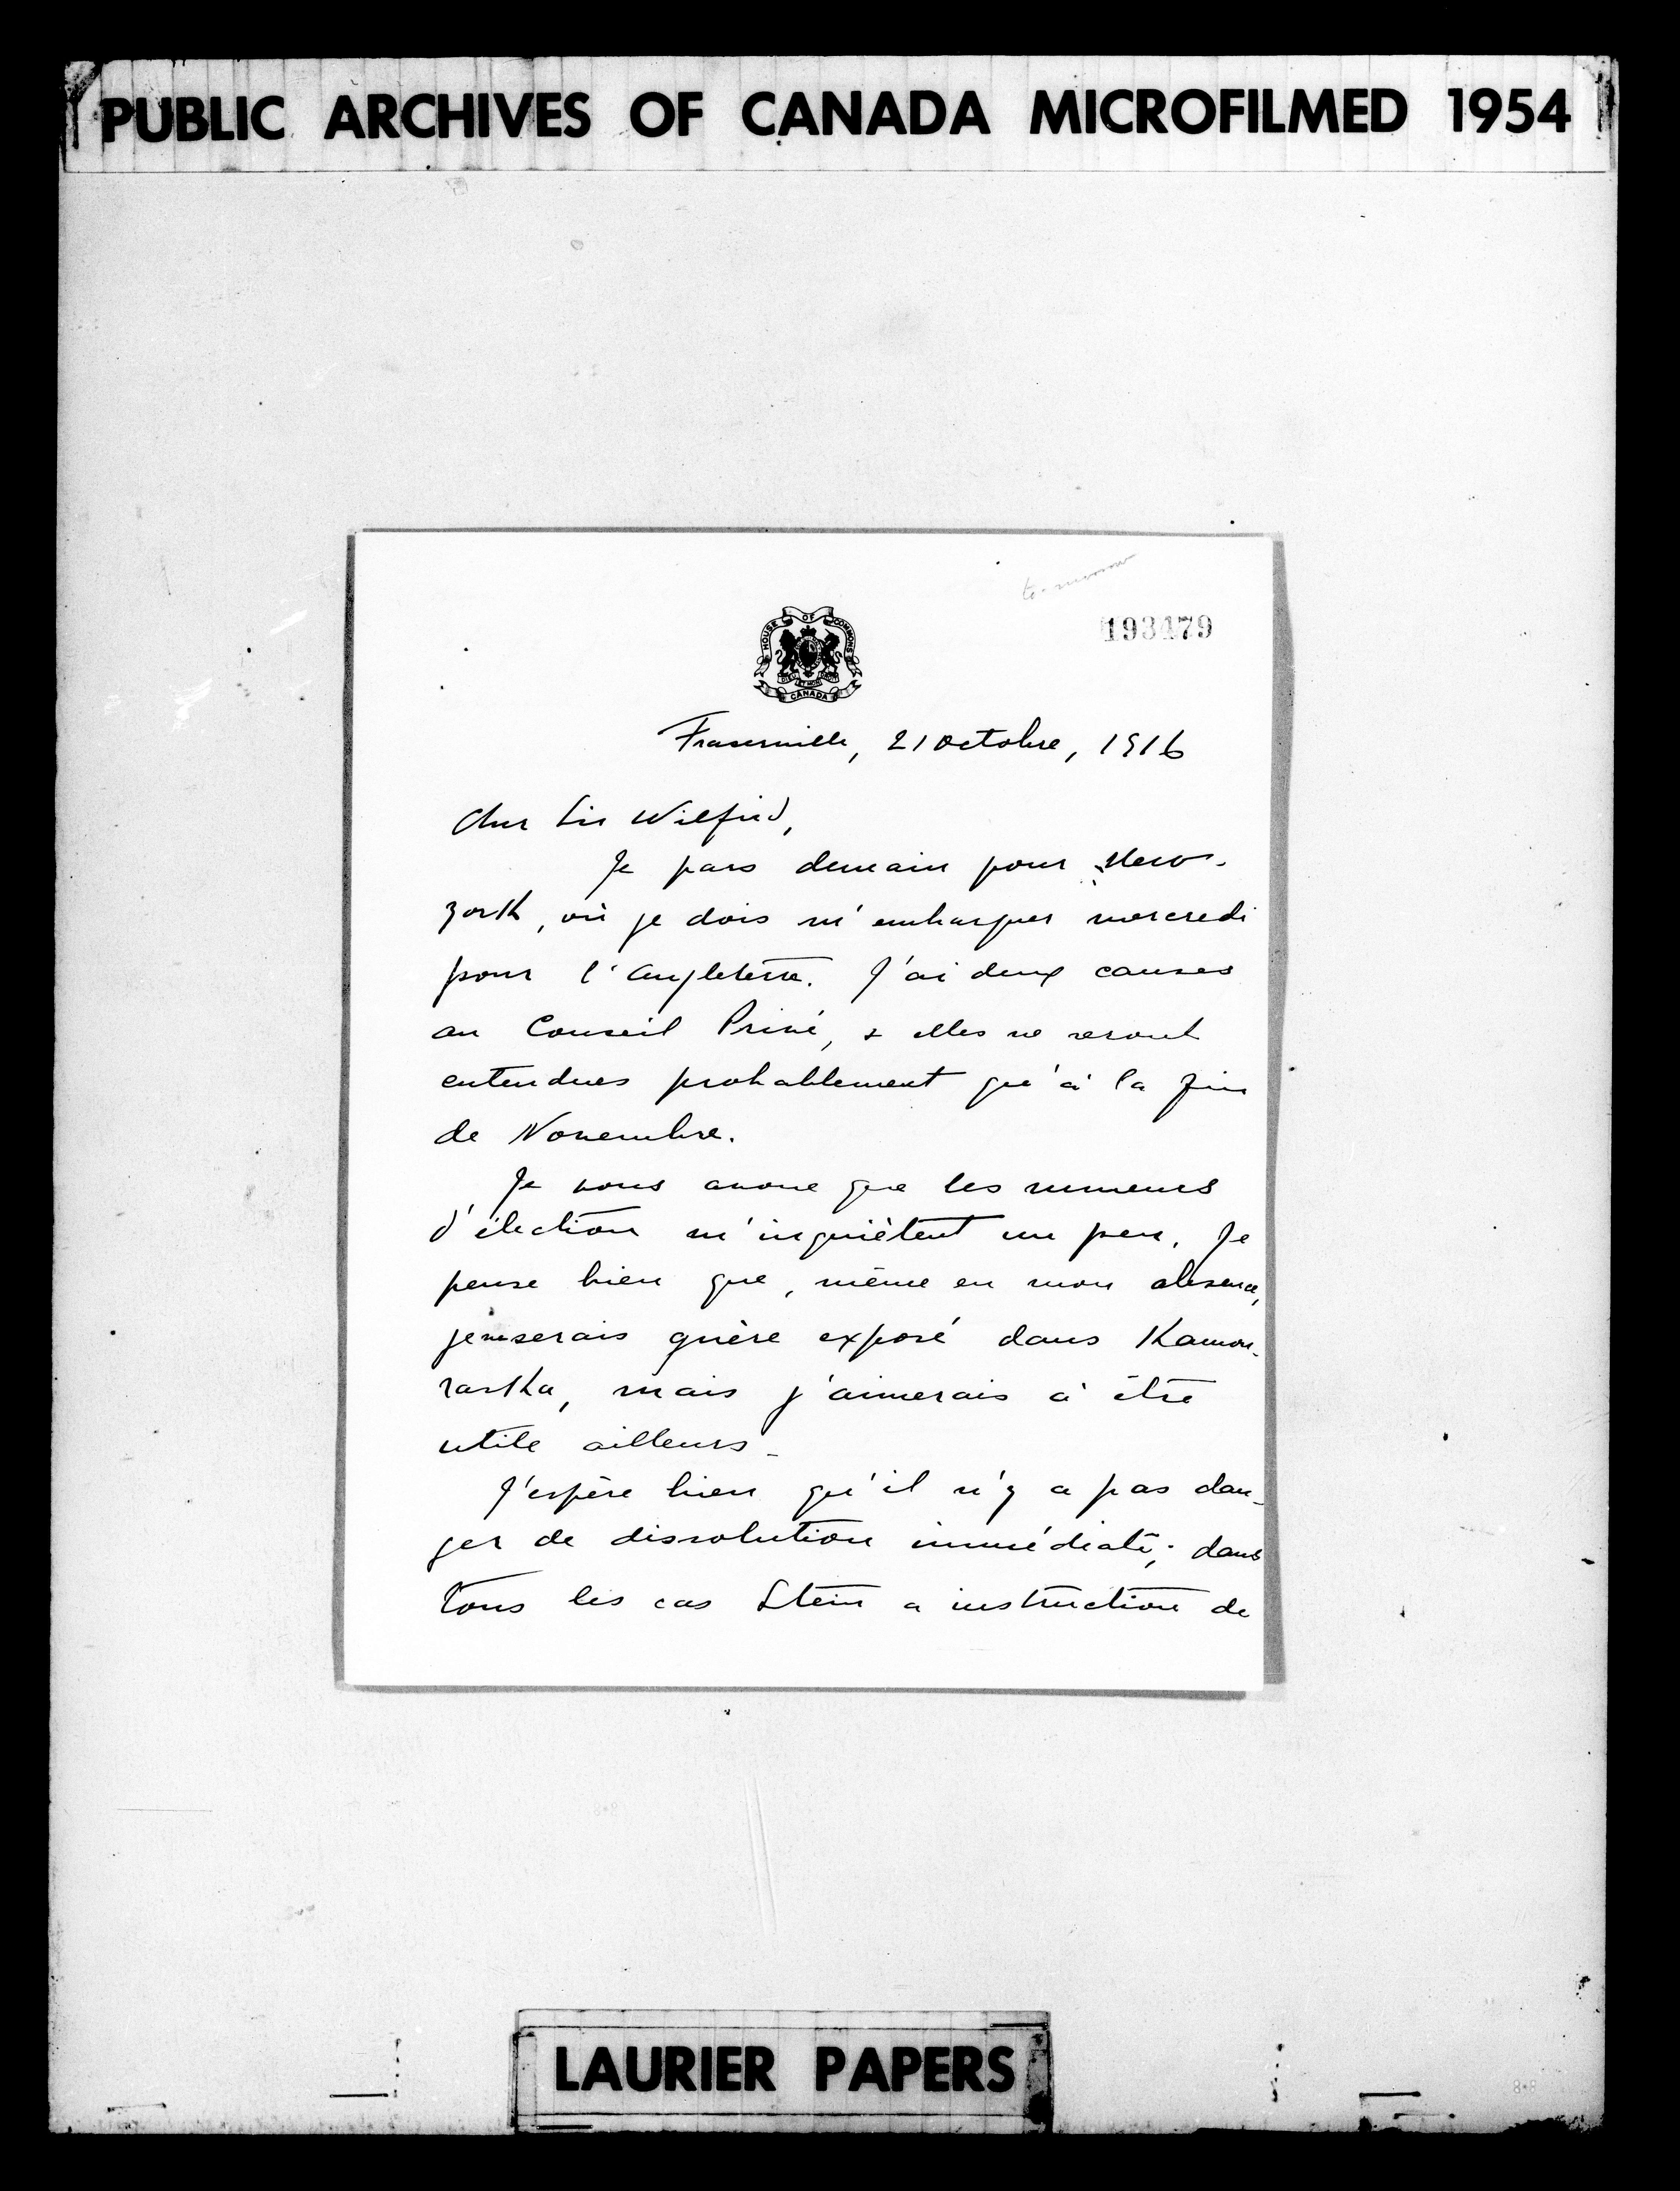 PUBLIC ARCHIVES OF CANADA MICROFILMED 1954
to-morrow
193479
HOUSE OF COMMONS
CANADA
Fraserville, 21 Octobre, 1916
Cher Sir Wilfrid,
Je pars demain pour New-
york, où je dois m'embarquer mercredi
pour l'Angleterre. J'ai deux causes
au Conseil Privé, & elles ne seront
entendues probablement qu'à la fin
de Novembre.
Je vous avoue que les rumeurs
d'élection m'inquiètent un peu. Je
pense bien que, même en mon absence,
je ne serais guère exposé dans Kamou-
raska, mais j'aimerais à être
utile ailleurs -
J'espère bien qu'il n'y a pas dan-
ger de dissolution immédiate; dans
tous les cas Stein a instruction de
LAURIER PAPERS